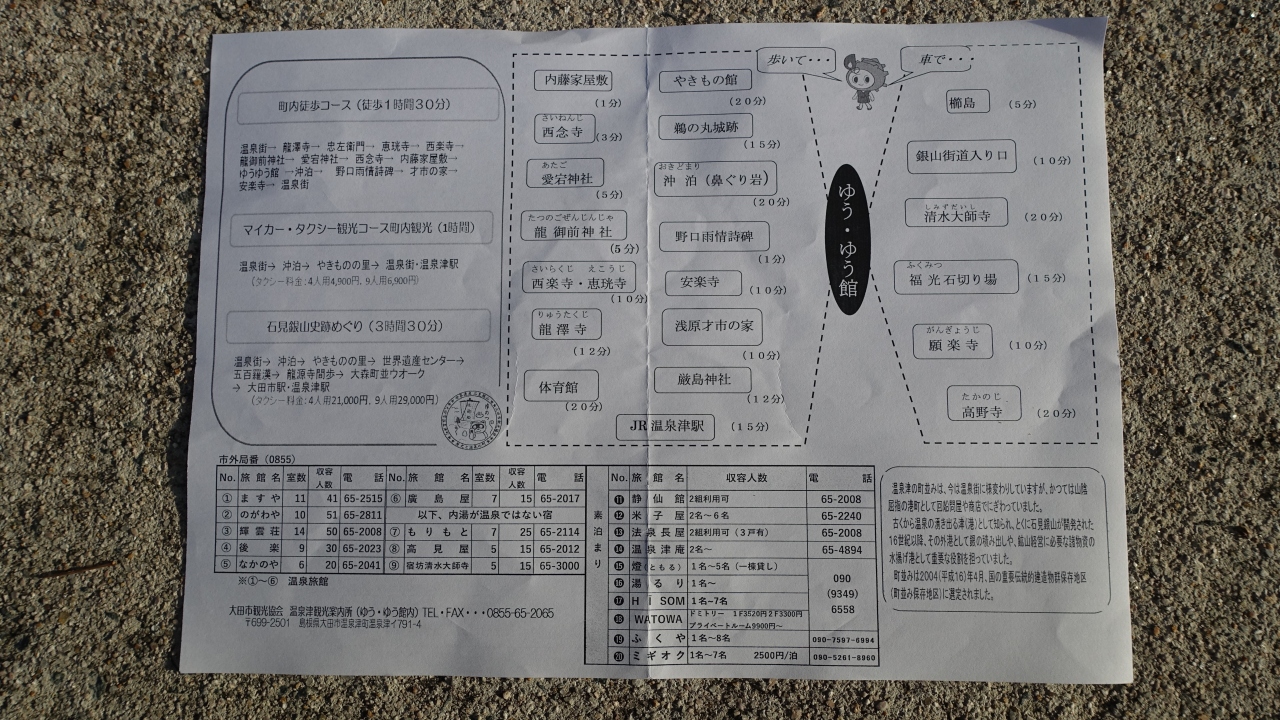 町内徒歩コース（徒歩１時間３０分）
温泉街→ 龍澤寺→ 忠左衛門→ 恵珖寺→ 西楽寺→
龍御前神社→ 愛宕神社→ 西念寺→ 内藤家屋敷→
ゆうゆう館 →沖泊→ 野口雨情詩碑→ 才市の家→
安楽寺→ 温泉街
マイカー・タクシー観光コース町内観光（１時間）
温泉街→ 沖泊→ やきものの里→ 温泉街・温泉津駅
（タクシー料金：４人用4,900円．９人用6,900円）
石見銀山史跡めぐり（３時間３０分）
温泉街→ 沖泊→ やきものの里→ 世界遺産センター→
五百羅漢→ 龍源寺間歩→ 大森町並ウオーク
→ 大田市駅・温泉津駅
（タクシー料金：４人用21,000円．９人用29,000円）
内藤家屋敷
（１分）
さいねんじ
西念寺
（３分）
あたご
愛宕神社
（５分）
たつのごぜんじんじゃ
龍 御前神社
（５分）
さいらくじ えこうじ
西楽寺・恵珖寺
（１０分）
りゅうたくじ
龍澤寺
（１２分）
体育館
（２０分）
やきもの館
（２０分）
鵜の丸城跡
（１５分）
おきどまり
沖 泊（鼻ぐり岩）
（２０分）
野口雨情詩碑
（１分）
安楽寺
（１０分）
浅原才市の家
（１０分）
厳島神社
（１２分）
JR 温泉津駅
（１５分）
歩いて・・・
車で・・・
ゆう・ゆう館
櫛島
（５分）
銀山街道入り口
（１０分）
しみずだいし
清水大師寺
（２０分）
ふくみつ
福光石切り場
（１５分）
がんぎょうじ
願楽寺
（１０分）
たかのじ
高野寺
（２０分）
市外局番（0855）
No. 旅館名 室数 収容人数 電話 No. 旅館名 室数 収容人数 電話
① ますや 11 41 65-2515 ⑥ 廣島屋 7 15 65-2017
② のがわや 10 51 65-2811 以下、内湯が温泉ではない宿
③ 輝雲荘 14 50 65-2008 ⑦ もりもと 7 25 65-2114
④ 後楽 9 30 65-2023 ⑧ 高見屋 5 15 65-2012
⑤ なかのや 6 20 65-2041 ⑨ 宿坊清水大師寺 5 15 65-3000
※①～⑥ 温泉旅館
大田市観光協会 温泉津観光案内所（ゆう・ゆう館内）TEL・FAX・・・0855-65-2065
〒699-2501 島根県大田市温泉津町温泉津イ791-4
素泊まり
No. 旅館名 収容人数 電話
⓫ 静仙館 2組利用可 65-2008
⓬ 米子屋 2名～６名 65-2240
⓭ 法泉長屋 2組利用可（３戸有） 65-2008
⓮ 温泉津庵 2名～ 65-4894
⓯ 燈（ともる） 1名～5名（一棟貸し）
⓰ 湯るり 1名～
⓱ HÏSOM 1名~7名
⓲ WATOWA ドミトリー １F3520円２F3300円
プライベートルーム9900円～
090
(9349)
6558
⓳ ふくや 1名～8名 090-7597-6994
⓴ ミギオク 1名～7名 2500円/泊 090-5261-8960
温泉津の町並みは、今は温泉街に様変わりしていますが、かつては山陰
屈指の港町として回船問屋や商店でにぎわっていました。
古くから温泉の湧き出る津（港）として知られ、とくに石見銀山が開発された
16世紀以降、その外港として銀の積み出しや、鉱山経営に必要な諸物資の
水揚げ港として重要な役割を担っていました。
町並みは2004（平成16）年４月、国の重要伝統的建造物群保存地区
（町並み保存地区）に選定されました。